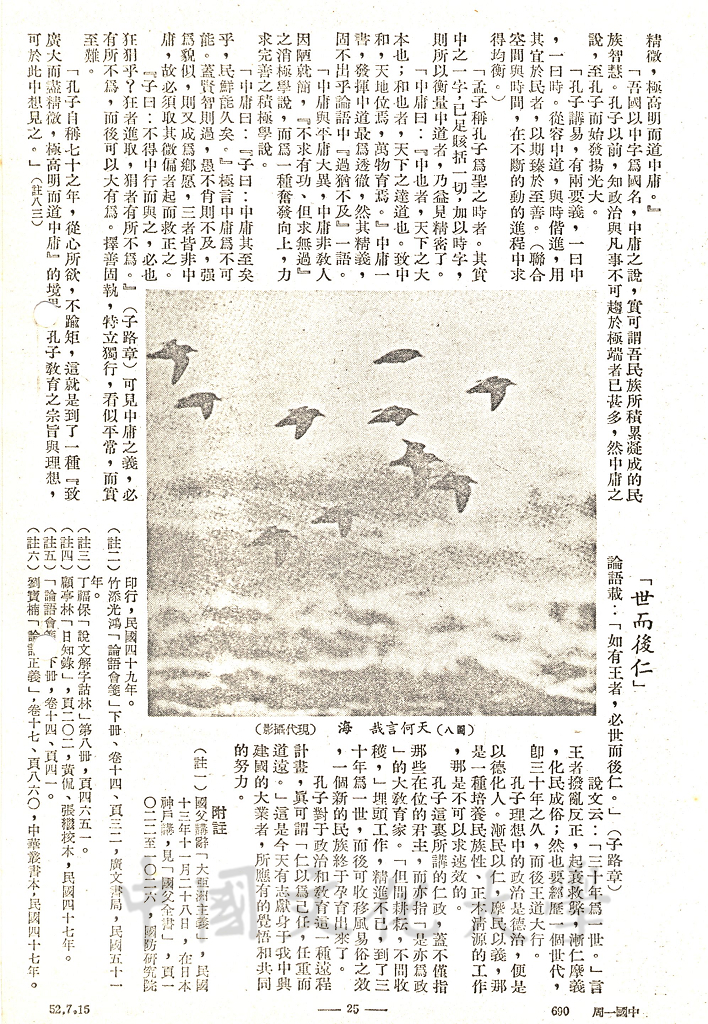 精微，極高明而道中庸。』
「吾國以中字爲國名，中庸之說，實可謂吾民族所積累凝成的民
族智慧。孔子以前，知政治與凡事不可趨於極端者已甚多，然中庸之
說，至孔子而始發揚光大。
「孔子講易，有兩要義，一曰中
，一曰時。從容中道，與時偕進，用
其宜於民者，以期臻於至善。（聯合
空間與時間，在不斷的動的進程中求
得均衡。）
「孟子稱孔子爲聖之時者。其實
中之一字，已足賅括一切，加以時字，
則所以衡量中道者，乃益見精密了。
「中庸曰：『中也者，天下之大
本也；和也者，天下之達道也。致中
和，天地位焉，萬物育焉。』中庸一
書，發揮中道最爲透徹，然其精義，
固不出乎論語中『過猶不及』一語。
「中庸與平庸大異，中庸非敎人
因陋就簡，『不求有功、但求無過』
之消極學說，而爲一種奮發向上，力
求完善之積極學說。
「中庸曰：『子曰：中庸其至矣
乎，民鮮能久矣。』極言中庸爲不可
能。蓋賢智則過，愚不肖則不及，强
爲貌似，則又成爲鄉愿，三者皆非中
庸，故必須取其微偏者起而救正之。
『子曰：不得中行而與之，必也
狂狷乎？狂者進取，狷者有所不爲。』（子路章）可見中庸之義，必
有所不爲，而後可以大有爲。擇善固執，特立獨行，看似平常，而實
至難。
「孔子自稱七十之年，從心所欲，不踰矩，這就是到了一種『致
廣大而盡精微，極高明而道中庸』的境界　孔子敎育之宗旨與理想，
可於此中想見之。」（註八三）
（圖八）天何言哉　海　（現代攝影）
「世而後仁」
論語載：「如有王者，必世而後仁。」（子路章）
說文云：「三十年爲一世。」言
王者撥亂反正，起衰救弊，漸仁摩義
，化民成俗；然也要經歷一個世代，
卽三十年之久，而後王道大行。
孔子理想中的政治是德治，便是
以德化人。漸民以仁，摩民以義，那
是一種培養民族性，正本淸源的工作
，那是不可以求速效的。
孔子這裏所講的仁政，蓋不僅指
那些在位的君主，而亦指「是亦爲政
」的大敎育家。「但問耕耘，不問收
穫」，埋頭工作，精進不已，到了三
十年爲一世，而後可收移風易俗之效
，一個新的民族終于孕育出來了。
孔子對于政治和敎育這一種遠程
計畫，眞可謂「仁以爲己任，任重而
道遠。」這是今天有志獻身于我中興
建國的大業者，所應有的覺悟和共同
的努力。
附註
（註一）國父講辭「大亞洲主義」，民國
十三年十一月二十八日，在日本
神戶講，見「國父全書」，頁一
〇二二至一〇二六，國防硏究院
印行，民國四十九年。
（註二）竹添光鴻「論語會箋」下冊、卷十四、頁三二，廣文書局，民國五十一
年。
（註三）丁福保「說文解字詁林」第八冊，頁四六五一。
（註四）顧亭林「日知錄」，頁二〇二，黃侃、張繼校本，民國四十七年。
（註五）「論語會　下冊，卷十四、頁四一。
（註六）劉寶楠「論語正義」，卷十七、頁八六〇，中華叢書本，民國四十七年。
中國文化大學
52.7.15
—25—
690
中國一周